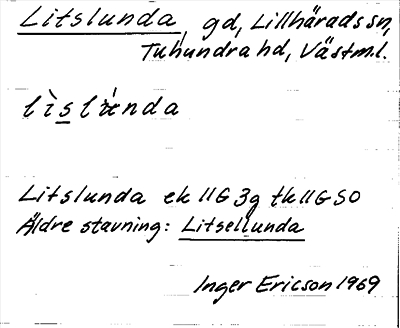 Litslunda, gd, Lillhärads sn,
Tuhundra hd, Västml.
Litslunda ek 11G 3g tk 11G SO
Äldre stavning: Litsellunda
Inger Ericson 1969